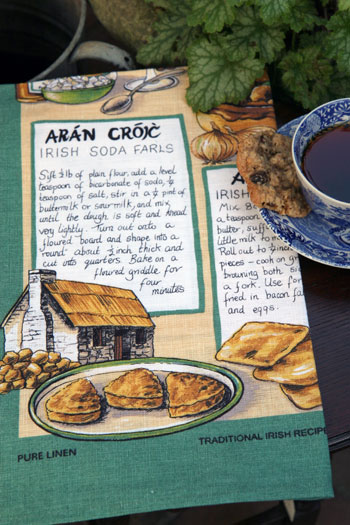 ARÁN CRÓIĊ
IRISH SODA FARLS
Sift ½ lb of plain flour, add a level
teaspoon of bicarbonate of soda, ½
teaspoon of salt, stir in a ½ pint of
buttermilk or sourmilk, and mix
until the dough is soft and knead
very lightly. Turn out onto a
floured board and shape into a
'round' about ½ inch thick and
cut into quarters. Bake on a
floured griddle for
four
minutes
A
IRISH
Mix
a teaspoon
butter, suff
little milk to
Roll out to
pieces - cook on
browning both si
a fork. Use fo
fried in bacon fa
and eggs.
PURE LINEN
TRADITIONAL IRISH RECIP